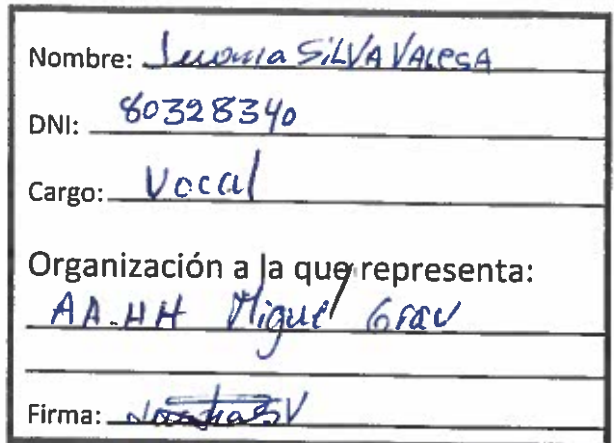 Nombre: SiLVA VALESA
DNI: 80328340
Cargo: Vocal
Organización a la que representa:
AA.HH Miguel Grau
Firma: